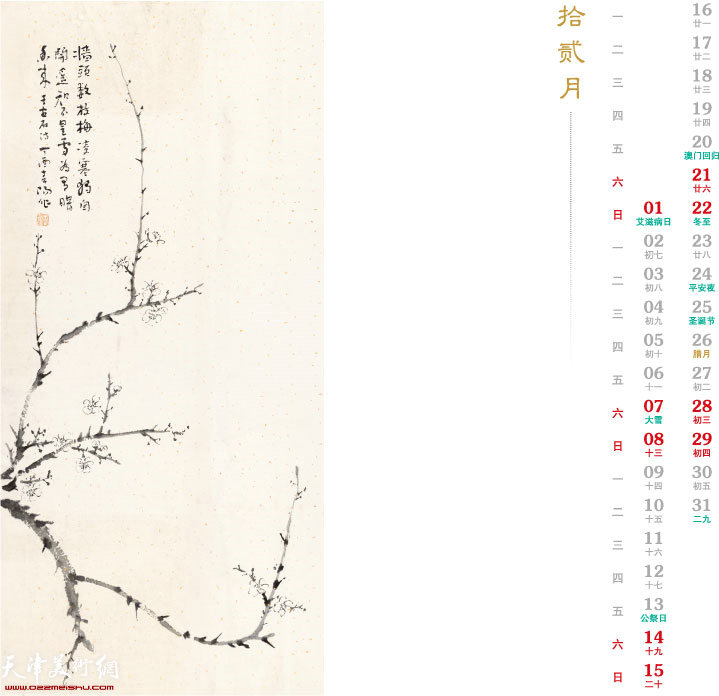 墙頭數枝梅凌寒獨自
開遥知不是雪為有暗
香來 王安石诗 丁酉
拾贰月
一 16
廿一
二 17
廿二
三 18
廿三
四 19
廿四
五 20
澳门回归
六 21
廿六
日 01 22
艾滋病日 冬至
一 02 23
初七 廿八
二 03 24
初八 平安夜
三 04 25
初九 圣诞节
四 05 26
初十 腊月
五 06 27
十一 初二
六 07 28
大雪 初三
日 08 29
十三 初四
一 09 30
十四 初五
二 10 31
十五 二九
三 11
十六
四 12
十七
五 13
公祭日
六 14
十九
日 15
二十
天津美術網
www.022meishu.com